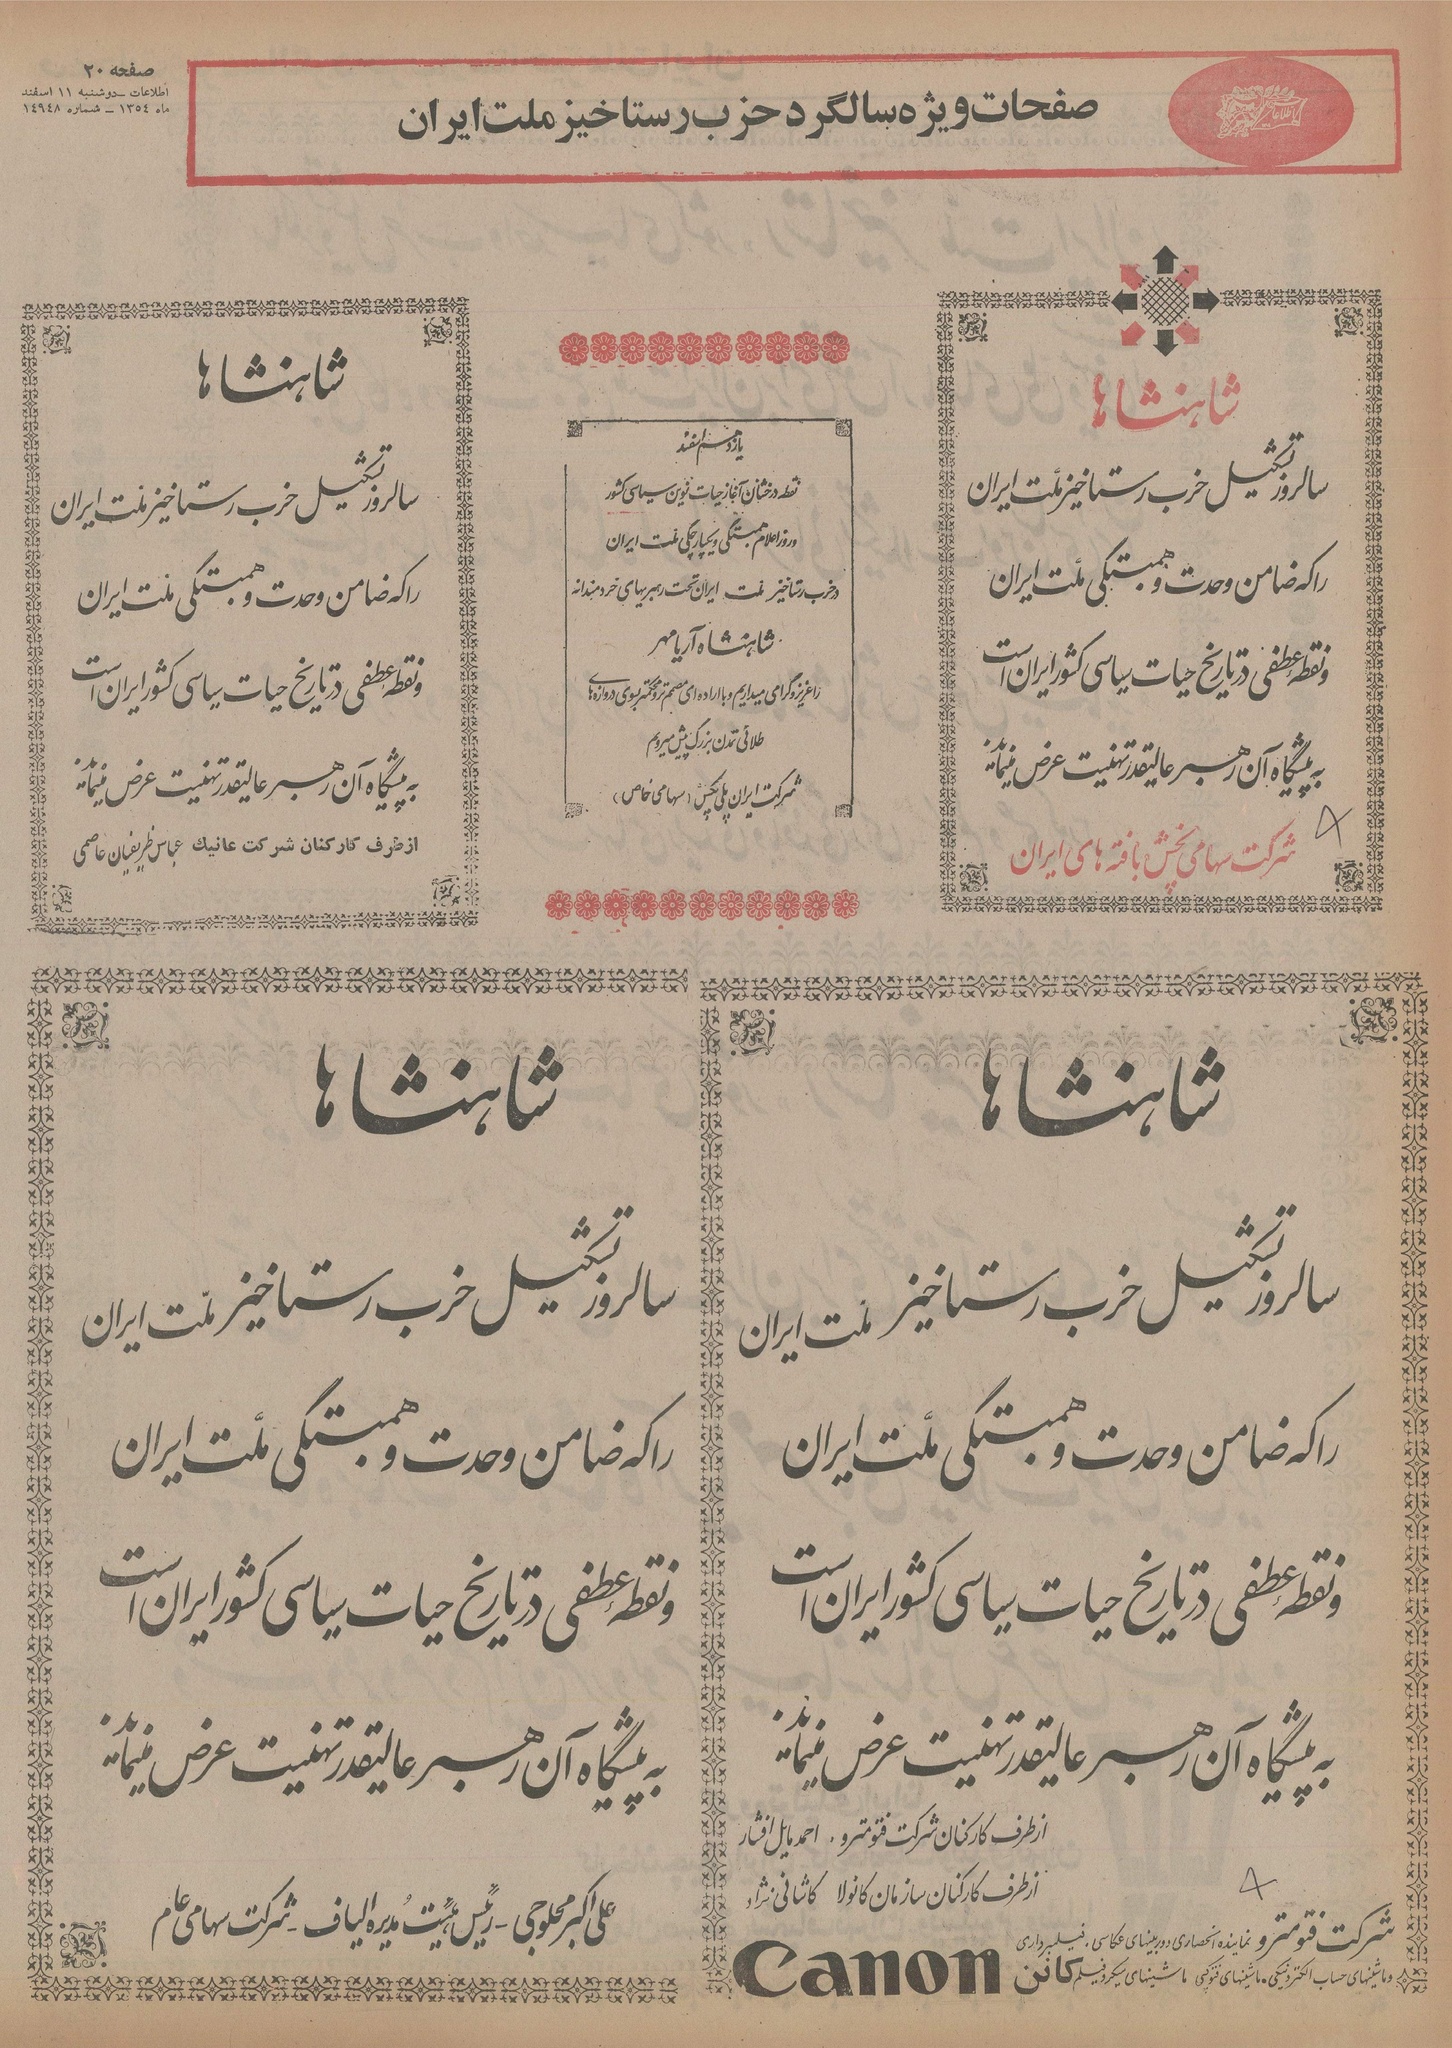 صفحه ۲۰
اطلاعات ـ دوشنبه ۱۱ اسفند
ماه ۱۳۵۴ ـ شماره ۱۴۹۴۸
صفحات ویژه سالگرد حزب رستاخیز ملت ایران
شاهنشاها
سالروز تشکیل حزب رستاخیز ملت ایران
را که ضامن وحدت و همبستگی ملت ایران
و نقطه عطفی در تاریخ حیات سیاسی کشور ایران است
به پیشگاه آن رهبر عالیقدر تهنیت عرض مینماید
شرکت سهامی پخش بافته های ایران
یازدهم اسفند
نقطه درخشان آغاز حیات نوین سیاسی کشور
و روز اعلام همبستگی و یکپارچگی ملت ایران
در حزب رستاخیز ملت ایران تحت رهبریهای خردمندانه
شاهنشاه آریامهر
را عزیز و گرامی میداریم و با اراده ای مصمم تر و محکمتر بسوی دروازه های
طلائی تمدن بزرگ پیش میرویم
شرکت ایران پلی پخش (سهامی خاص)
شاهنشاها
سالروز تشکیل حزب رستاخیز ملت ایران
را که ضامن وحدت و همبستگی ملت ایران
و نقطه عطفی در تاریخ حیات سیاسی کشور ایران است
به پیشگاه آن رهبر عالیقدر تهنیت عرض مینماید
از طرف کارکنان شرکت عانیک عباس ظریفیان عاصمی
شاهنشاها
سالروز تشکیل حزب رستاخیز ملت ایران
را که ضامن وحدت و همبستگی ملت ایران
و نقطه عطفی در تاریخ حیات سیاسی کشور ایران است
به پیشگاه آن رهبر عالیقدر تهنیت عرض مینماید
از طرف کارکنان شرکت فتومترو، احمد مایل افشار
از طرف کارکنان سازمان کانولا کاشانی نژاد
شرکت فتومترو نماینده انحصاری دوربینهای عکاسی، فیلمبرداری
و ماشینهای حساب الکترونیکی، ماشینهای فتوکپی ماشینهای میکروفیلم کانن
Canon
شاهنشاها
سالروز تشکیل حزب رستاخیز ملت ایران
را که ضامن وحدت و همبستگی ملت ایران
و نقطه عطفی در تاریخ حیات سیاسی کشور ایران است
به پیشگاه آن رهبر عالیقدر تهنیت عرض مینماید
علی اکبر محلوجی ـ رئیس هیئت مدیره الیاف ـ شرکت سهامی عام